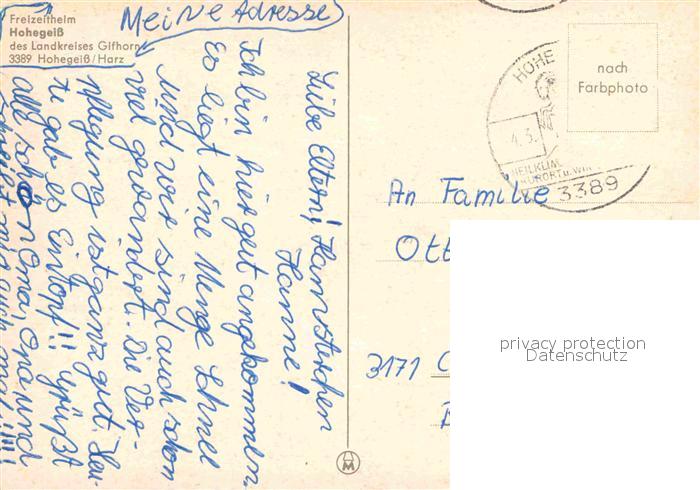 MEINE Adresse
Freizeitheim
Hohegeiß
des Landkreises Gifhorn
3389 Hohegeiß/Harz
Liebe Eltern! Hamsterchen
Hanne!
Ich bin hier gut angekommen.
Es liegt eine Menge Schnee
und wir sind auch schon
viel gewandert. Die Ver-
pflegung ist ganz gut. Heu-
te gab es Eintopf!! Grüßt
alle schön Oma, Opa und
schreibt mir auch mal!!!!
HOHE
4.3.
HEILKLIM.
KURORT u. WIN
3389
nach
Farbphoto
An Familie
Ott
3171
privacy protection
Datenschutz